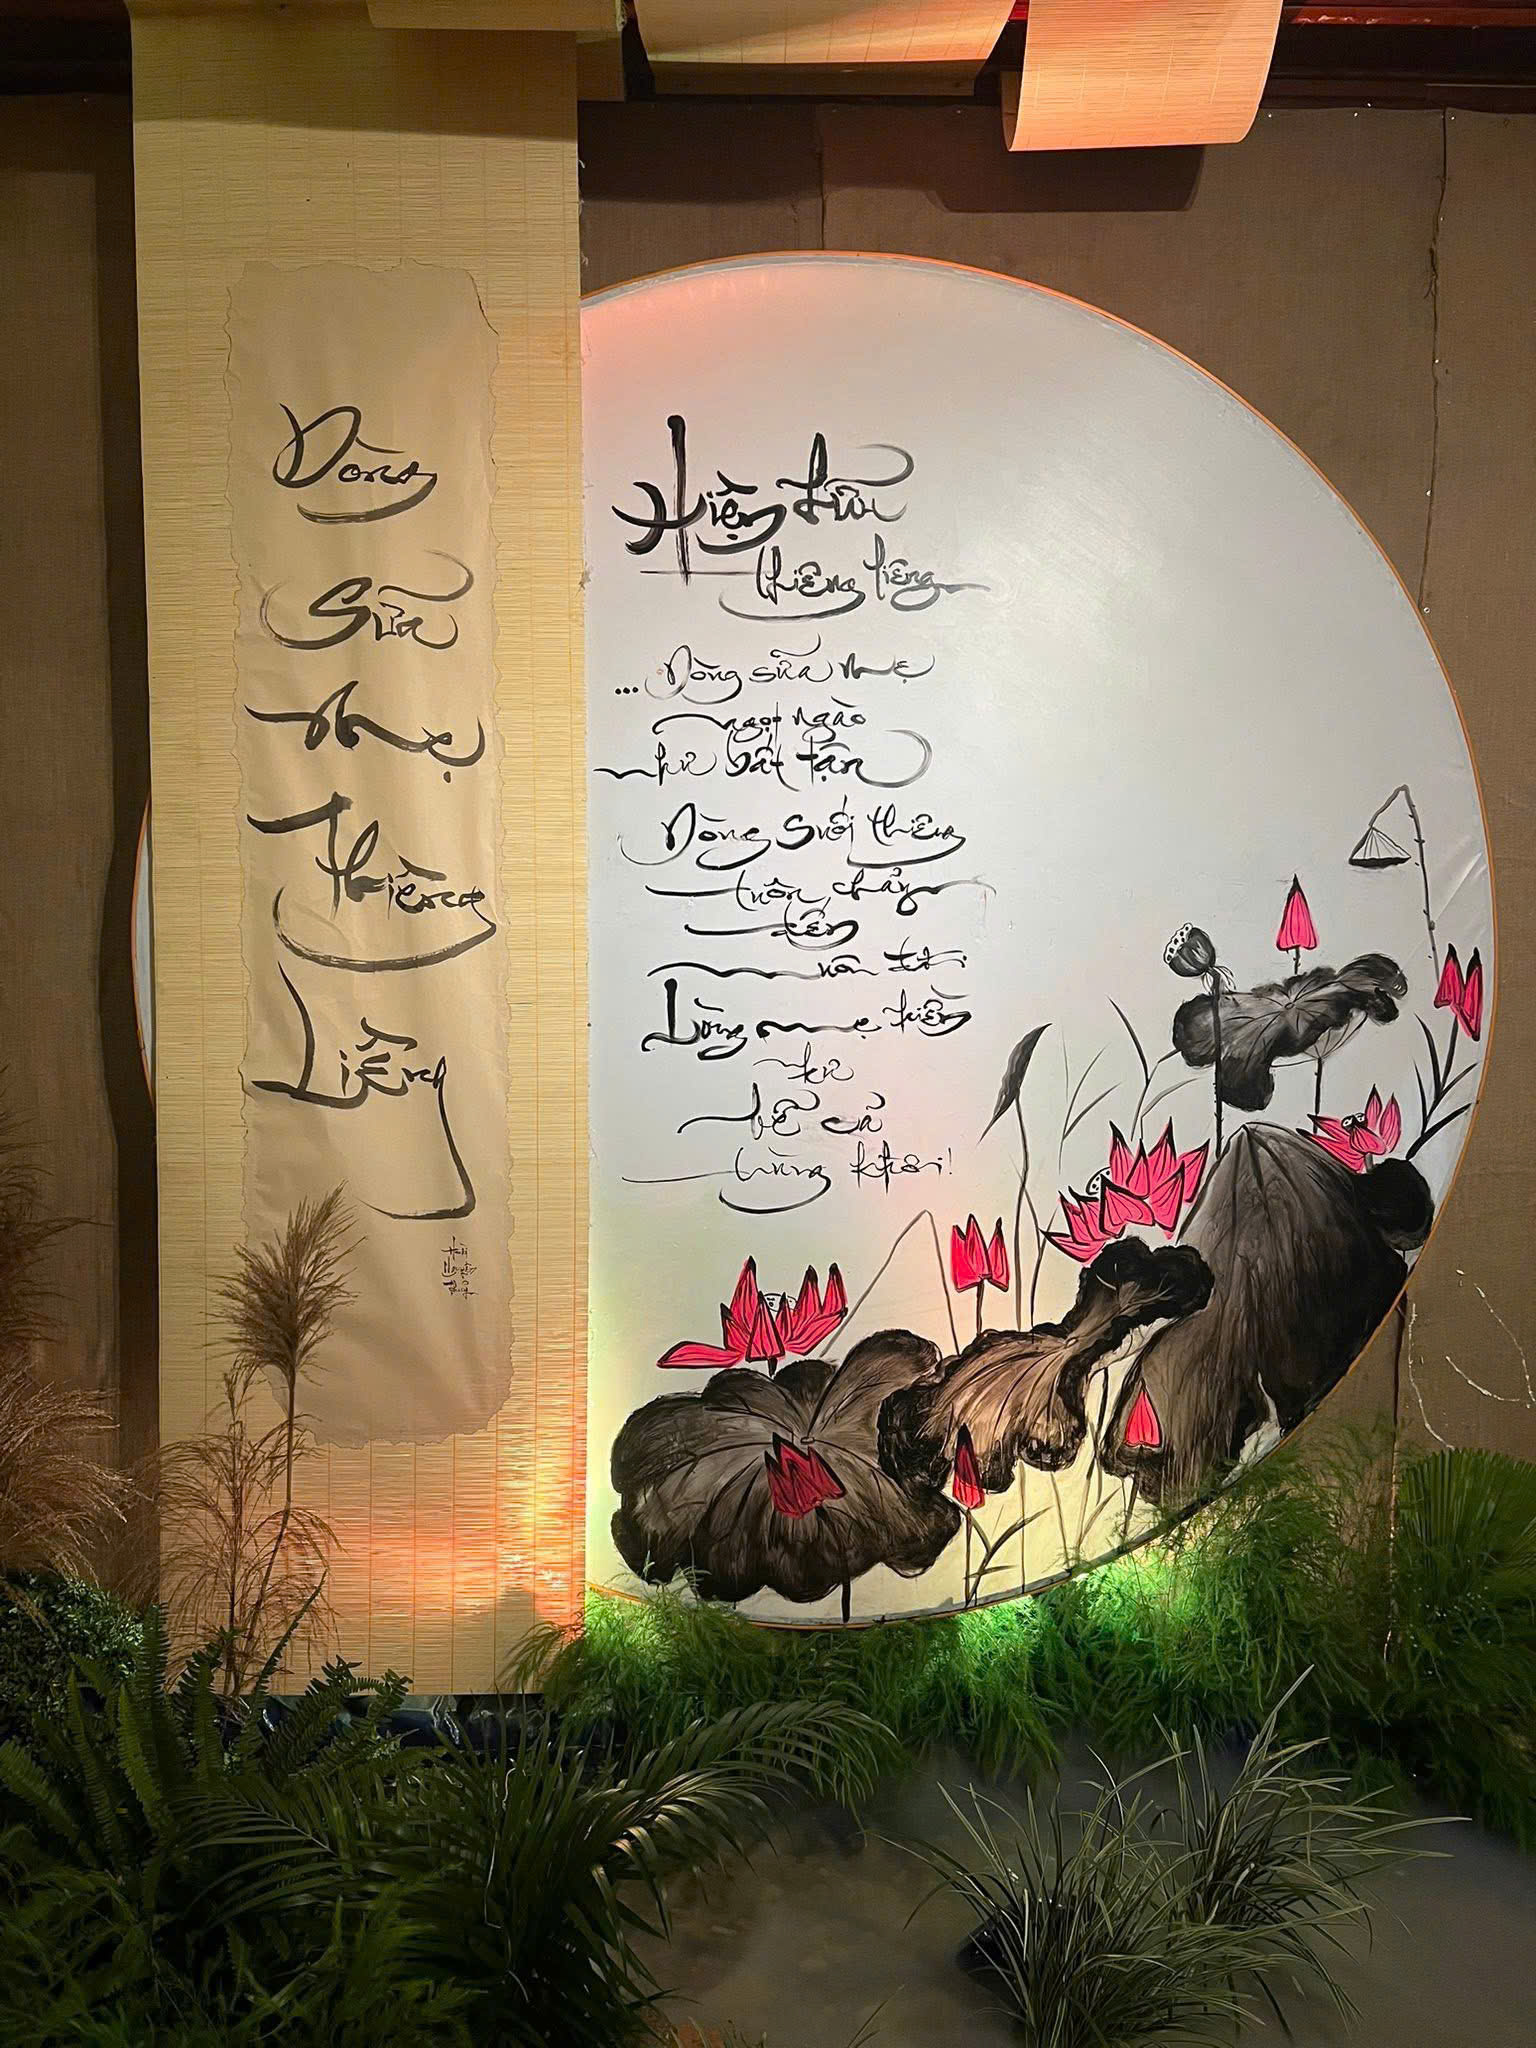 Dòng
Sữa
Mẹ
Thiêng
Liêng
Hiện hữu
thiêng liêng
... Dòng sữa mẹ
ngọt ngào
như bất tận
Dòng suối thiêng
tuôn chảy
đến
muôn đời
Lòng mẹ hiền
như
bể cả
trùng khơi!